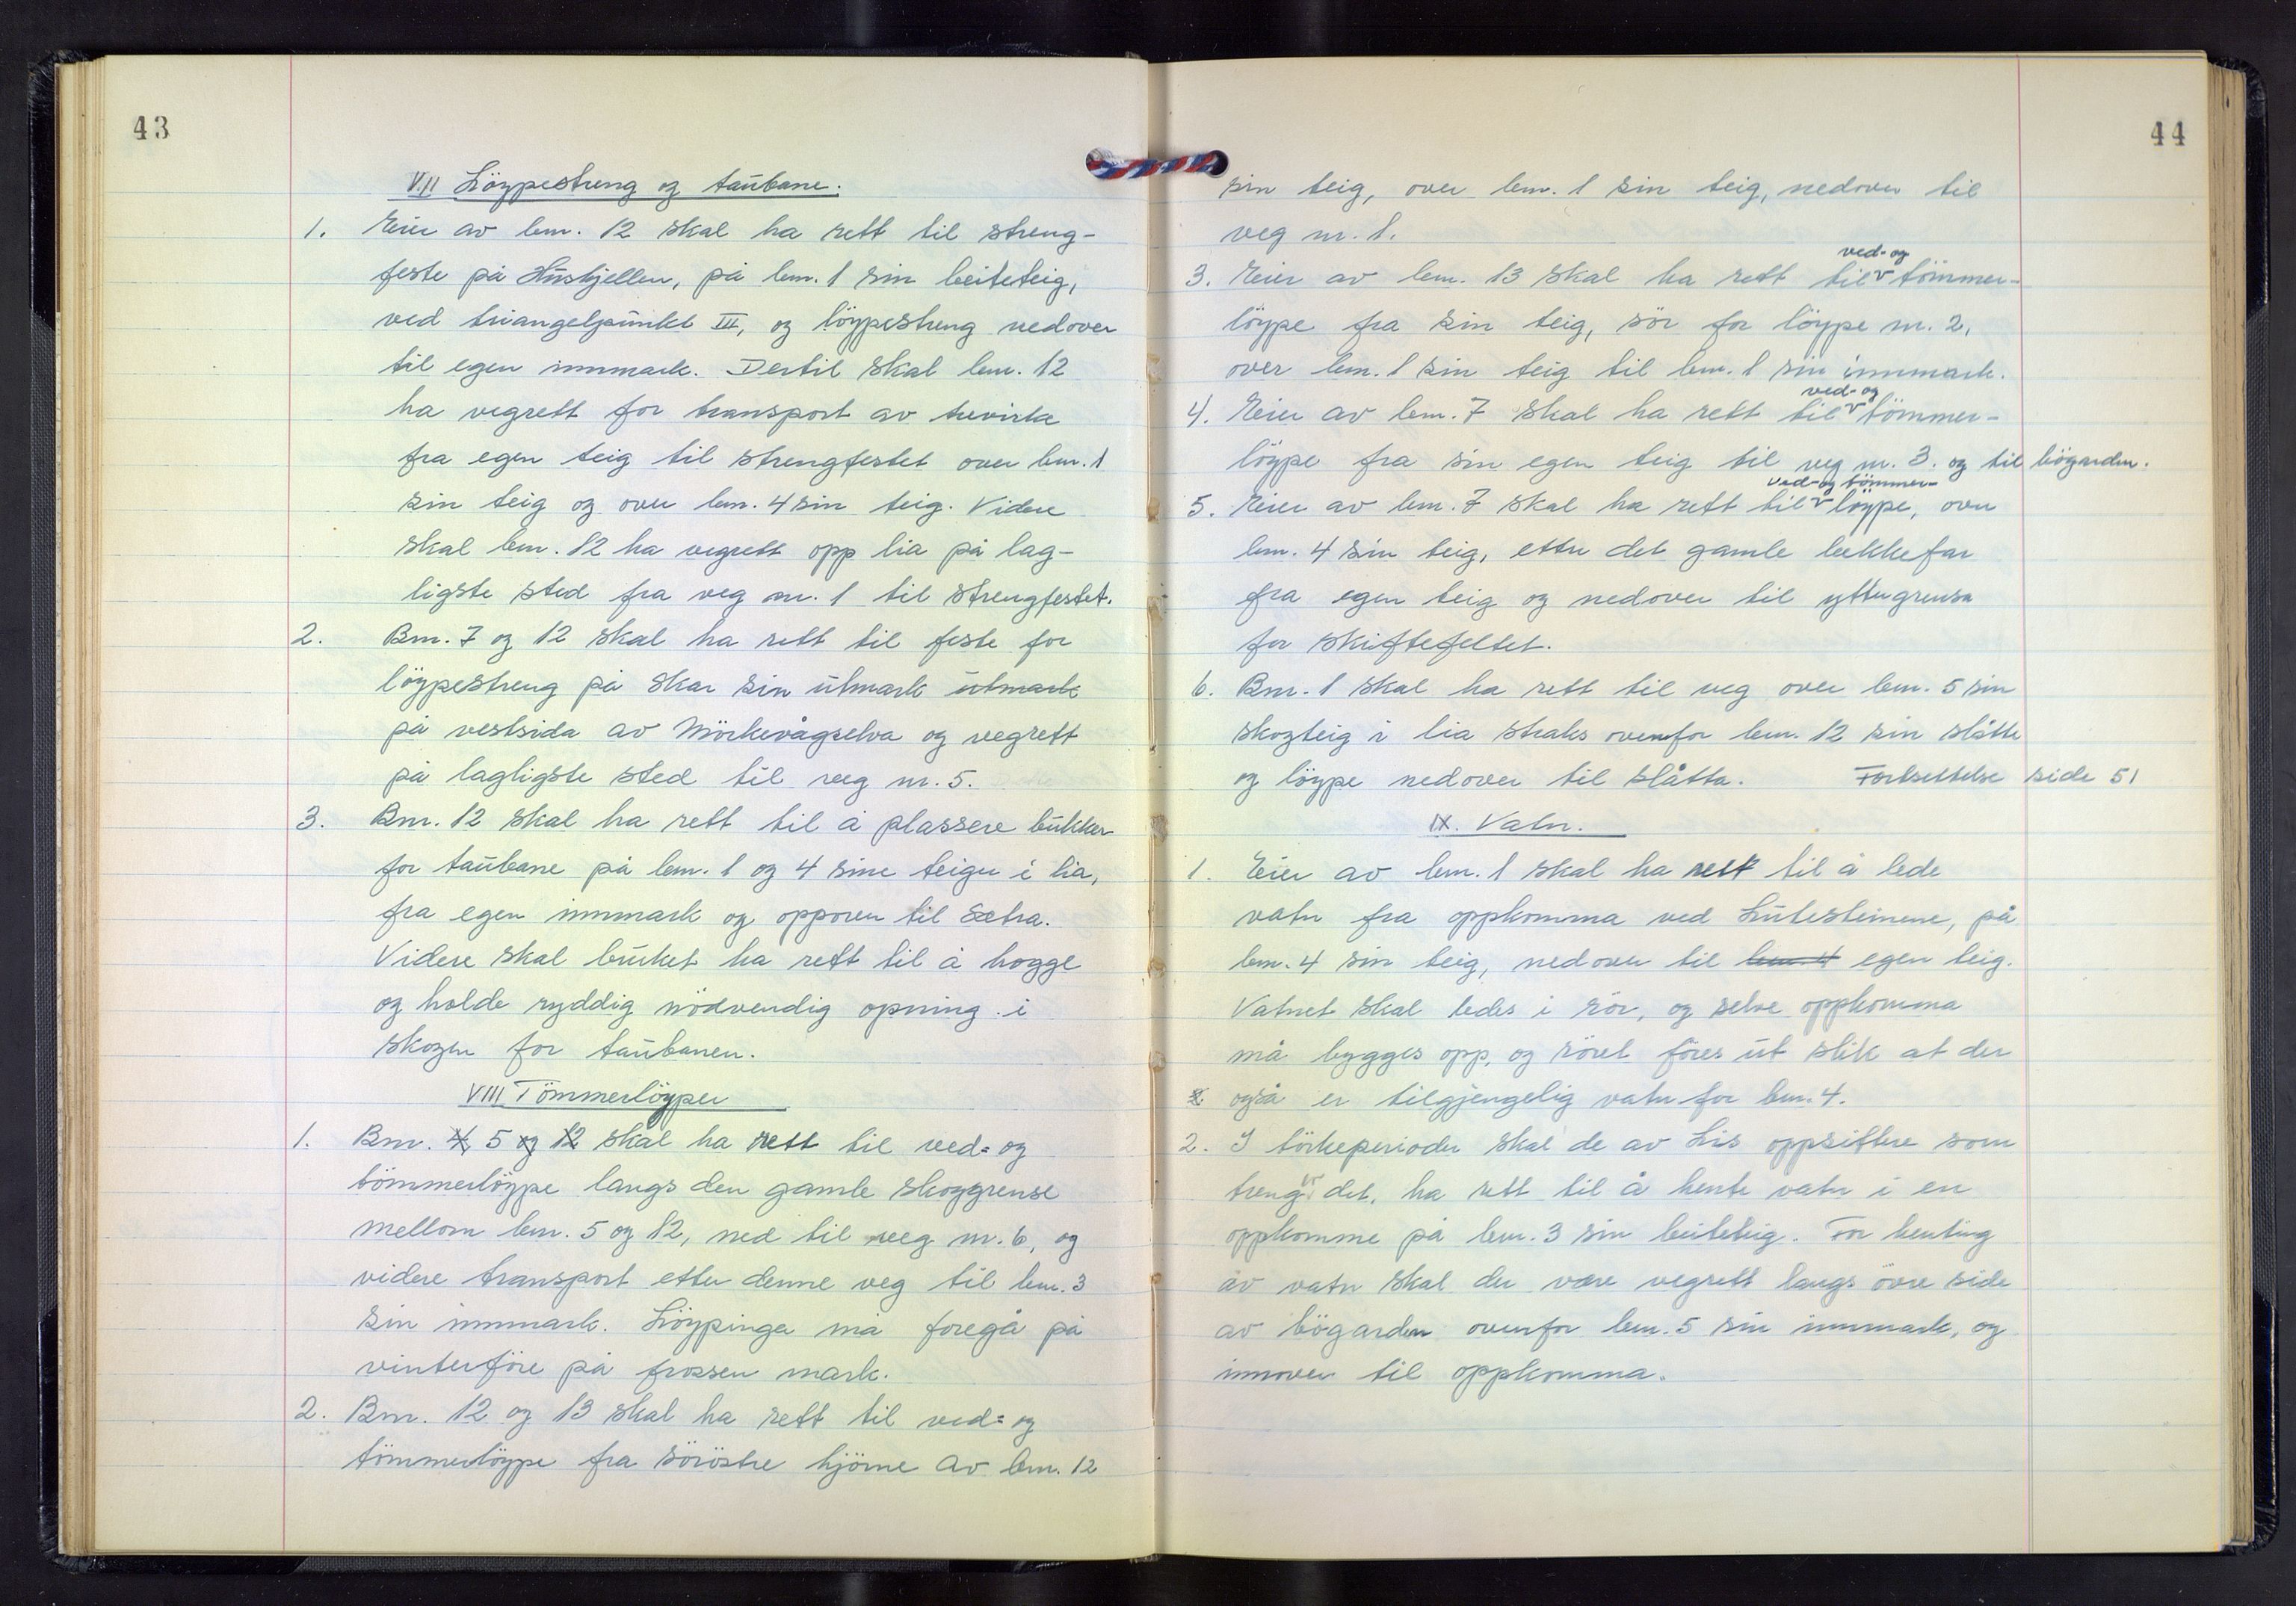 43
VII Löypestreng og taubane.
1. Eier av bm. 12 skal ha rett til streng-
feste på Huskjellen, på bm. 1 sin beiteteig,
ved triangelpunkt III, og löypestreng nedover
til egen innmark. Dertil skal bm. 12
ha vegrett for transport av trevirke
fra egen teig til strengfestet over bm. 1
sin teig og over bm. 4 sin teig. Videre
skal bm. 12 ha vegrett opp lia på lag-
ligste sted fra veg nr. 1 til strengfestet.
2. Bm. 7 og 12 skal ha rett til feste for
löypestreng på Skar sin utmark utmark
på vestsida av Mörkevågselva og vegrett
på lagligste sted til veg nr. 5.
3. Bnr. 12 skal ha rett til å plassere bukker
for taubane på bm. 1 og 4 sine teiger i lia,
fra egen innmark og oppover til Sætra.
Videre skal bruket ha rett til å hogge
og holde ryddig nödvendig opning i
skogen for taubanen.
VIII Tömmerlöyper
1. Bm. 4, 5 og 12 skal ha rett til ved= og
tömmerlöype langs den gamle skoggrense
mellom bm. 5 og 12, ned til veg nr. 6, og
videre transport etter denne veg til bm. 3
sin innmark. Löypinga må foregå på
vinterföre på frossen mark.
2. Bnr. 12 og 13 skal ha rett til ved= og
tömmerlöype fra söröstre hjörne av bm. 12
44
sin teig, over bm. 1 sin teig, nedover til
veg nr. 1.
ved- og
3. Eier av bm. 13 skal ha rett til v tömmer-
löype fra sin teig, sör for löype nr. 2,
over bm. 1 sin teig til bm. 1 sin innmark.
ved- og
4. Eier av bm. 7 skal ha rett til v tömmer-
löype fra sin egen teig til veg nr. 3. og til bögarden.
ved- og tömmer-
5. Eier av bm. 7 skal ha rett til v löype, over
bm. 4 sin teig, etter det gamle bekkefar
fra egen teig og nedover til yttergrensa
for skiftefeltet.
6. Bnr. 1 skal ha rett til veg over bm. 5 sin
skogteig i lia straks ovenfor bm. 12 sin slåtte
og löype nedover til slåtta. Fortsettelse side 51
IX. Vatn.
1. Eier av bm. 1 skal ha rett til å lede
vatn fra oppkomma ved Lutesteinene, på
bm. 4 sin teig, nedover til bm. 4 egen teig.
Vatnet skal ledes i rör, og selve oppkomma
må bygges opp, og röret föres ut slik at der
2. også er tilgjengelig vatn for bm. 4.
2. I törkeperioder skal de av Lis oppsittere som
trenger det, ha rett til å hente vatn i en
oppkomme på bm. 3 sin beiteteig. For henting
av vatn skal der være vegrett langs övre side
av bögarden ovenfor bm. 5 sin innmark, og
innover til oppkomma.